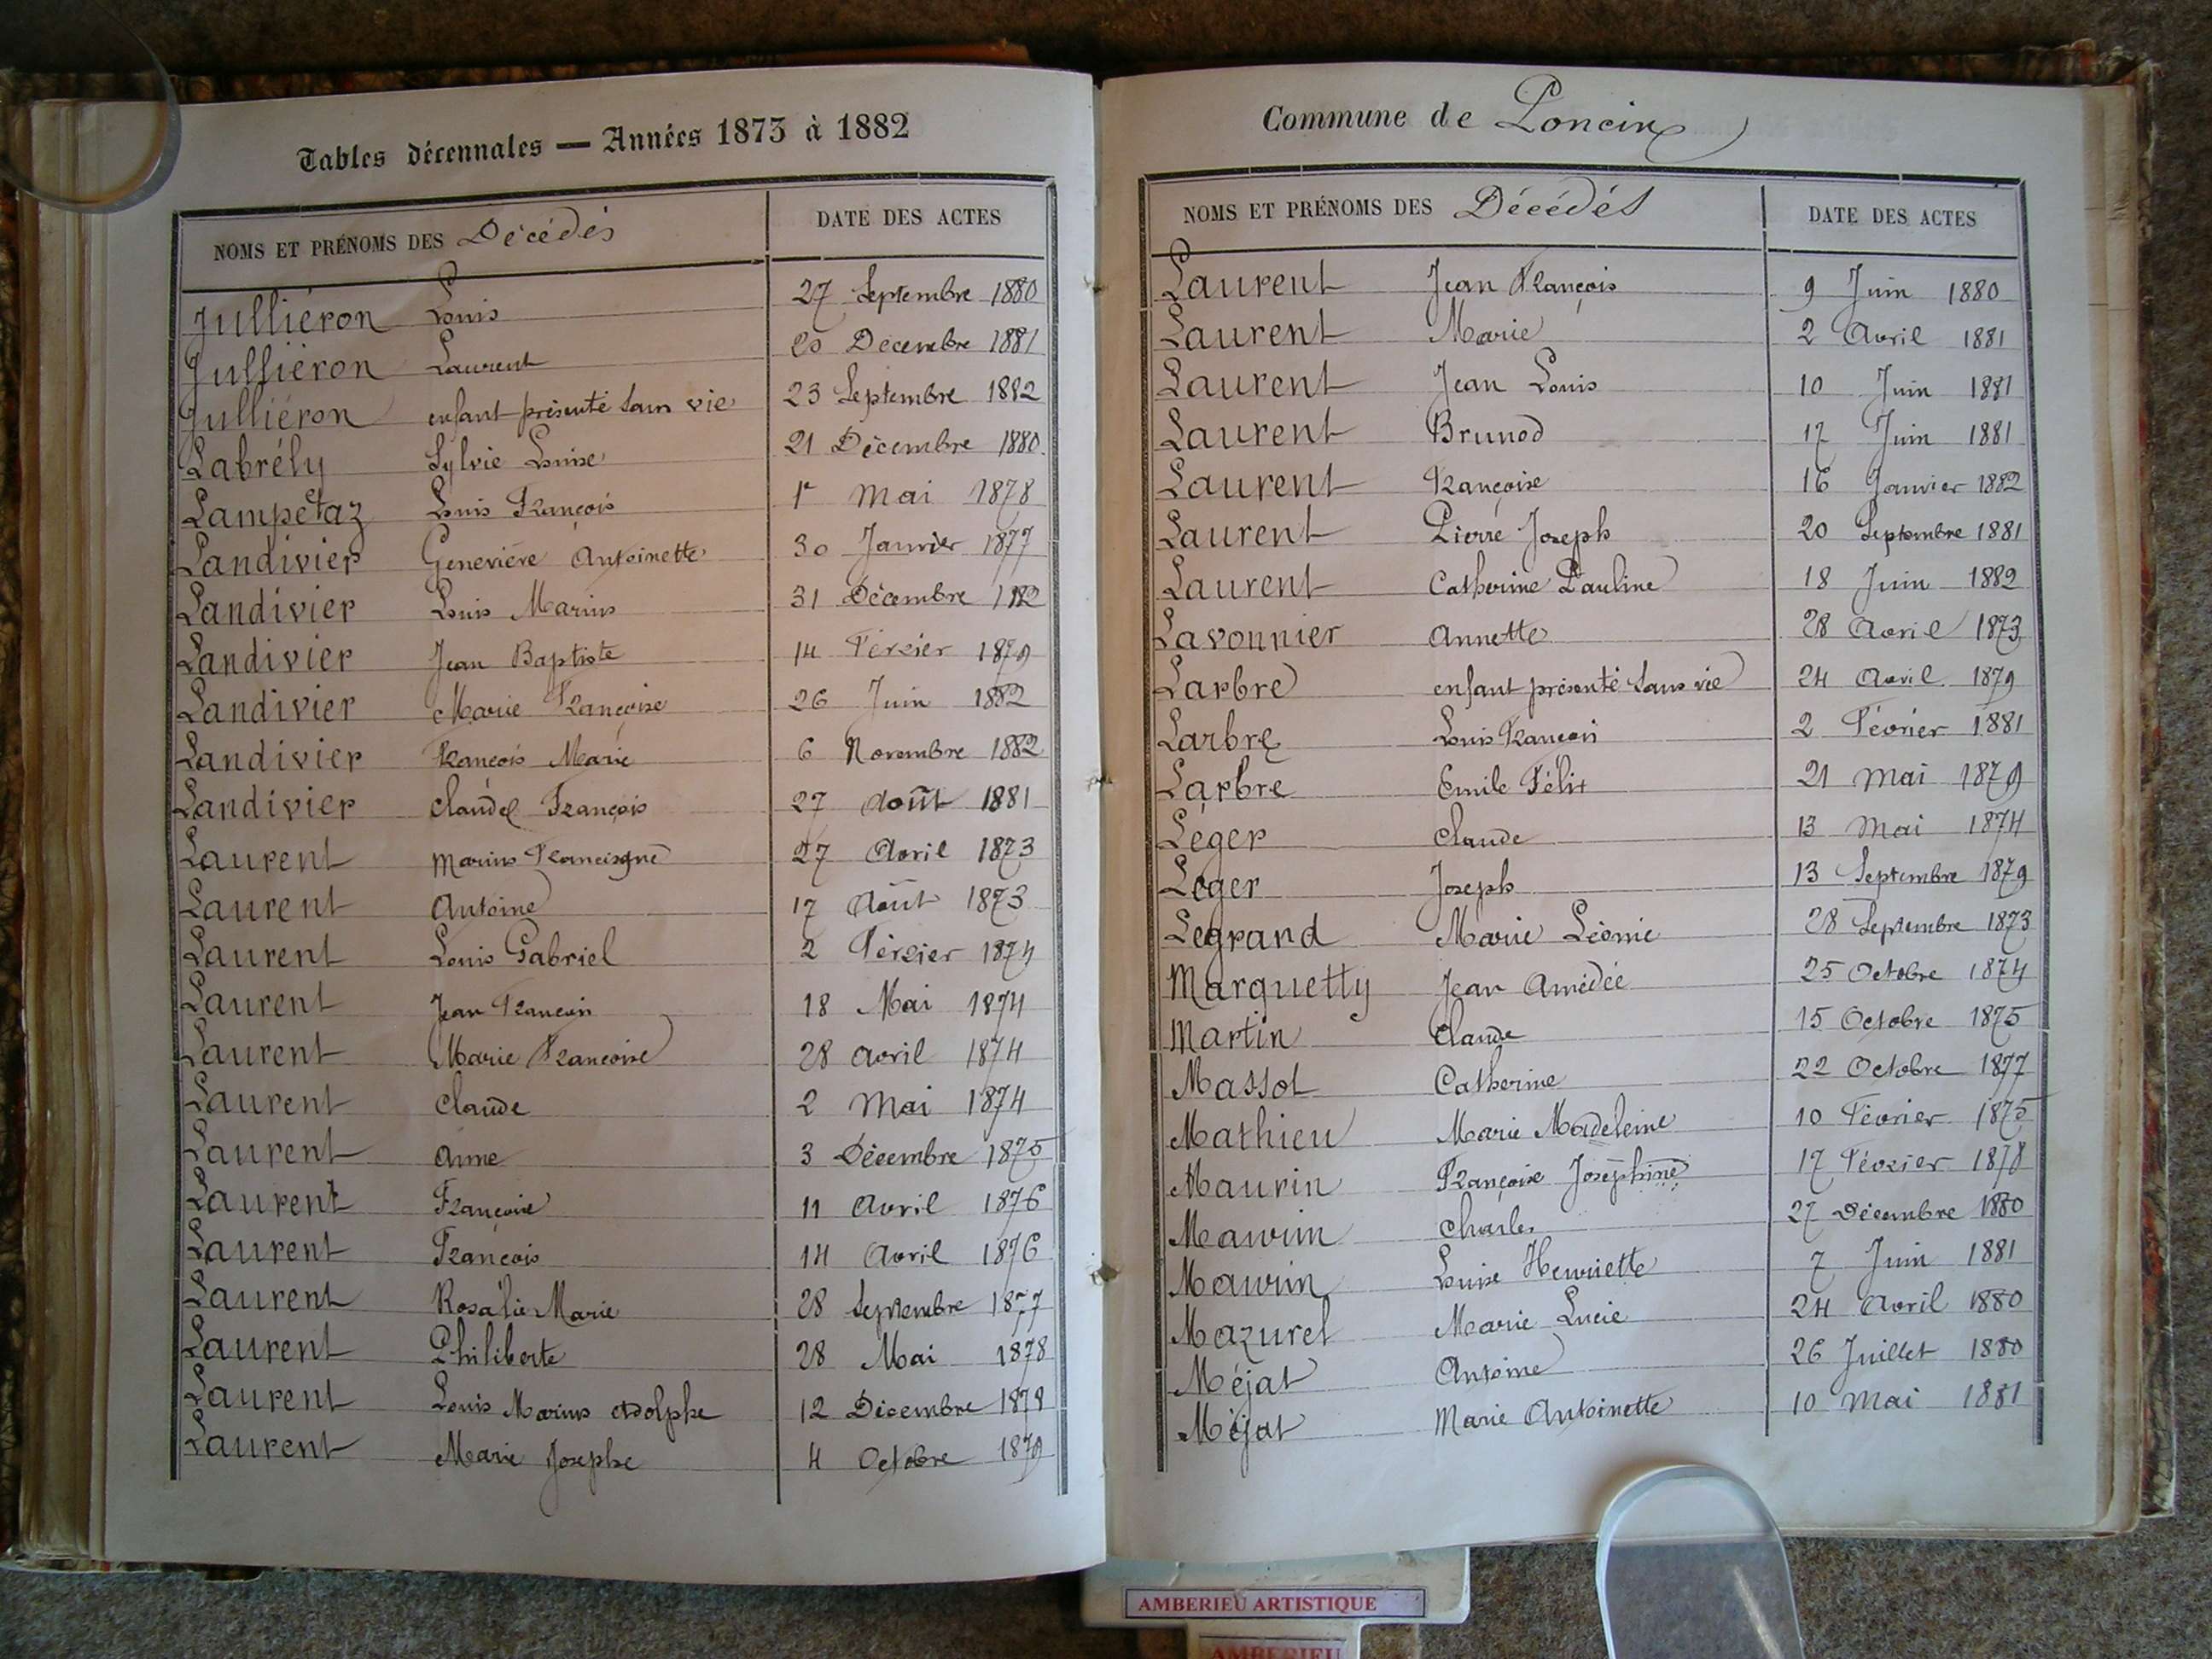 Tables décennales — Années 1873 à 1882
NOMS ET PRÉNOMS DES Décédés DATE DES ACTES
Julliéron Louis 27 Septembre 1880
Julliéron Laurent 20 Décembre 1881
Julliéron enfant présenté sans vie 23 Septembre 1882
Labrély Sylvie Louise 21 Décembre 1880
Lampetaz Louis François 1r Mai 1878
Landivier Geneviève Antoinette 30 Janvier 1877
Landivier Louis Marius 31 Décembre
Landivier Jean Baptiste 14 Février 1879
Landivier Marie Françoise 26 Juin 1882
Landivier François Marie 6 Novembre 1882
Landivier Claude François 27 Août 1881
Laurent Marius 27 Avril 1873
Laurent Antoine 17 Août 1873
Laurent Louis Gabriel 2 Février 1874
Laurent Jean François 18 Mai 1874
Laurent Marie Françoise 28 Avril 1874
Laurent Claude 2 Mai 1874
Laurent Anne 3 Décembre 1875
Laurent Françoise 11 Avril 1876
Laurent François 14 Avril 1876
Laurent Rosalie Marie 28 Septembre 1877
Laurent Philiberte 28 Mai 1878
Laurent Louis Marius Adolphe 12 Décembre 1878
Laurent Marie Josephe 4 Octobre 1879
Commune de Poncin
NOMS ET PRÉNOMS DES Décédés DATE DES ACTES
Laurent Jean François 9 Juin 1880
Laurent Marie 2 Avril 1881
Laurent Jean Louis 10 Juin 1881
Laurent Brunod 17 Juin 1881
Laurent Françoise 16 Janvier 1882
Laurent Pierre Joseph 20 Septembre 1881
Laurent Catherine Pauline 18 Juin 1882
Lavonnier Annette 28 Avril 1873
Larbre enfant présenté sans vie 24 Avril 1879
Larbre Louis François 2 Février 1881
Larbre Emile Félix 21 Mai 1879
Léger Claude 13 Mai 1874
Léger Joseph 13 Septembre 1879
Legrand Marie Léonie 28 Septembre 1873
Marquetty Jean Amédée 25 Octobre 1874
Martin Claude 15 Octobre 1875
Massot Catherine 22 Octobre 1877
Mathieu Marie Madeleine 10 Février 1875
Maurin Françoise Joséphine 17 Février 1878
Maurin Charles 27 Décembre 1880
Maurin Louise Henriette 7 Juin 1881
Mazurel Marie Lucie 24 Avril 1880
Méjat Antoine 26 Juillet 1880
Méjat Marie Antoinette 10 Mai 1881
AMBERIEU ARTISTIQUE
AMBERIEU